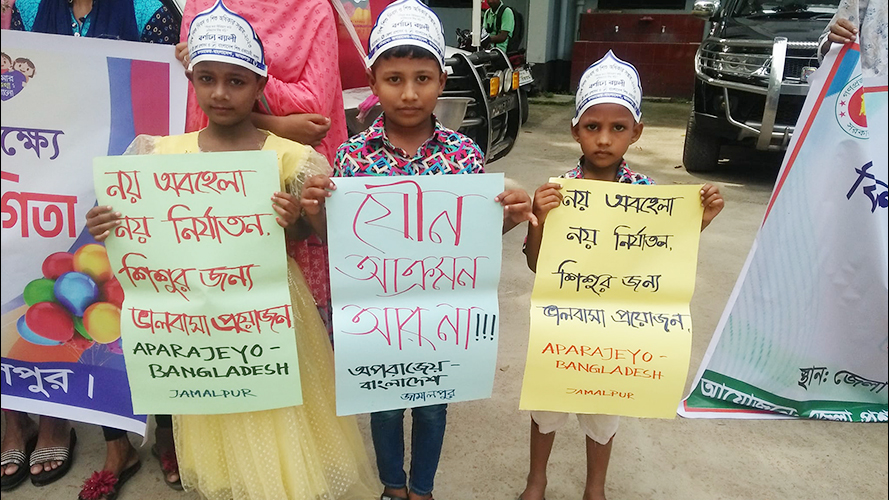 ক্ষ্যে
গিতা
লপুর ।
নয় অবহেলা
নয় নির্যাতন.
শিশুর জন্য
ভালবাসা প্রয়োজন
APARAJEYO-
BANGLADESH
JAMALPUR
যৌন
আক্রমন
আর না!!!
অপরাজেয়-
বাংলাদেশ
জামালপুর
নয় অবহেলা
নয় নির্যাতন.
শিশুর জন্য
ভালবাসা প্রয়োজন.
APARAJEYO-
BANGLADESH
JAMALPUR
স্থান: জেলা
আয়োজনে: জেলা প্রশ